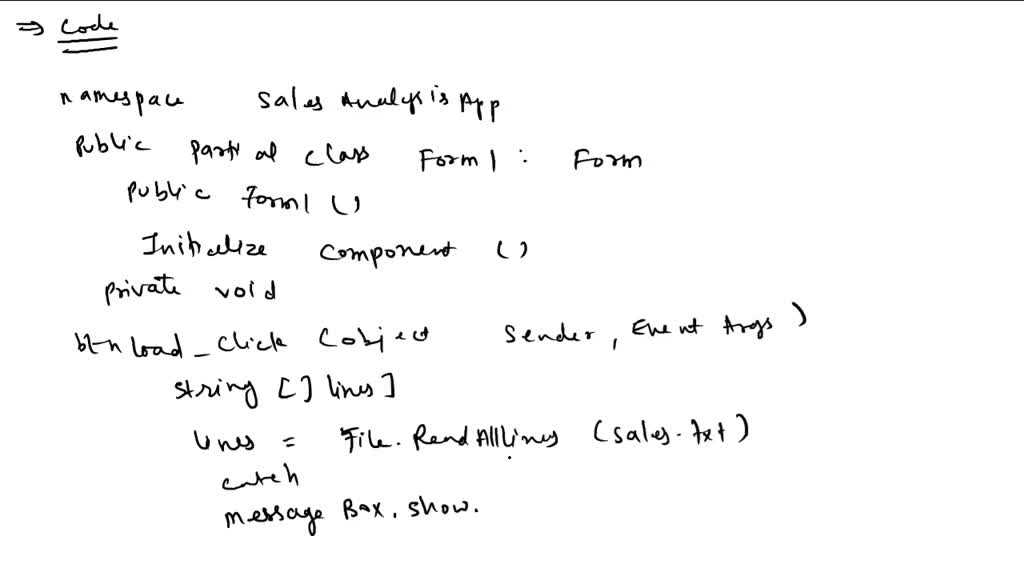 ⇒ Code
namespace Sales Analysis App
Public Partial class Form1 : Form
Public Form1 ()
Initialize Component ()
Private void
btn load_Click (object Sender, Event Args)
string [] lines]
lines = File.ReadAllLines (sales.txt)
catch
message Box. show.